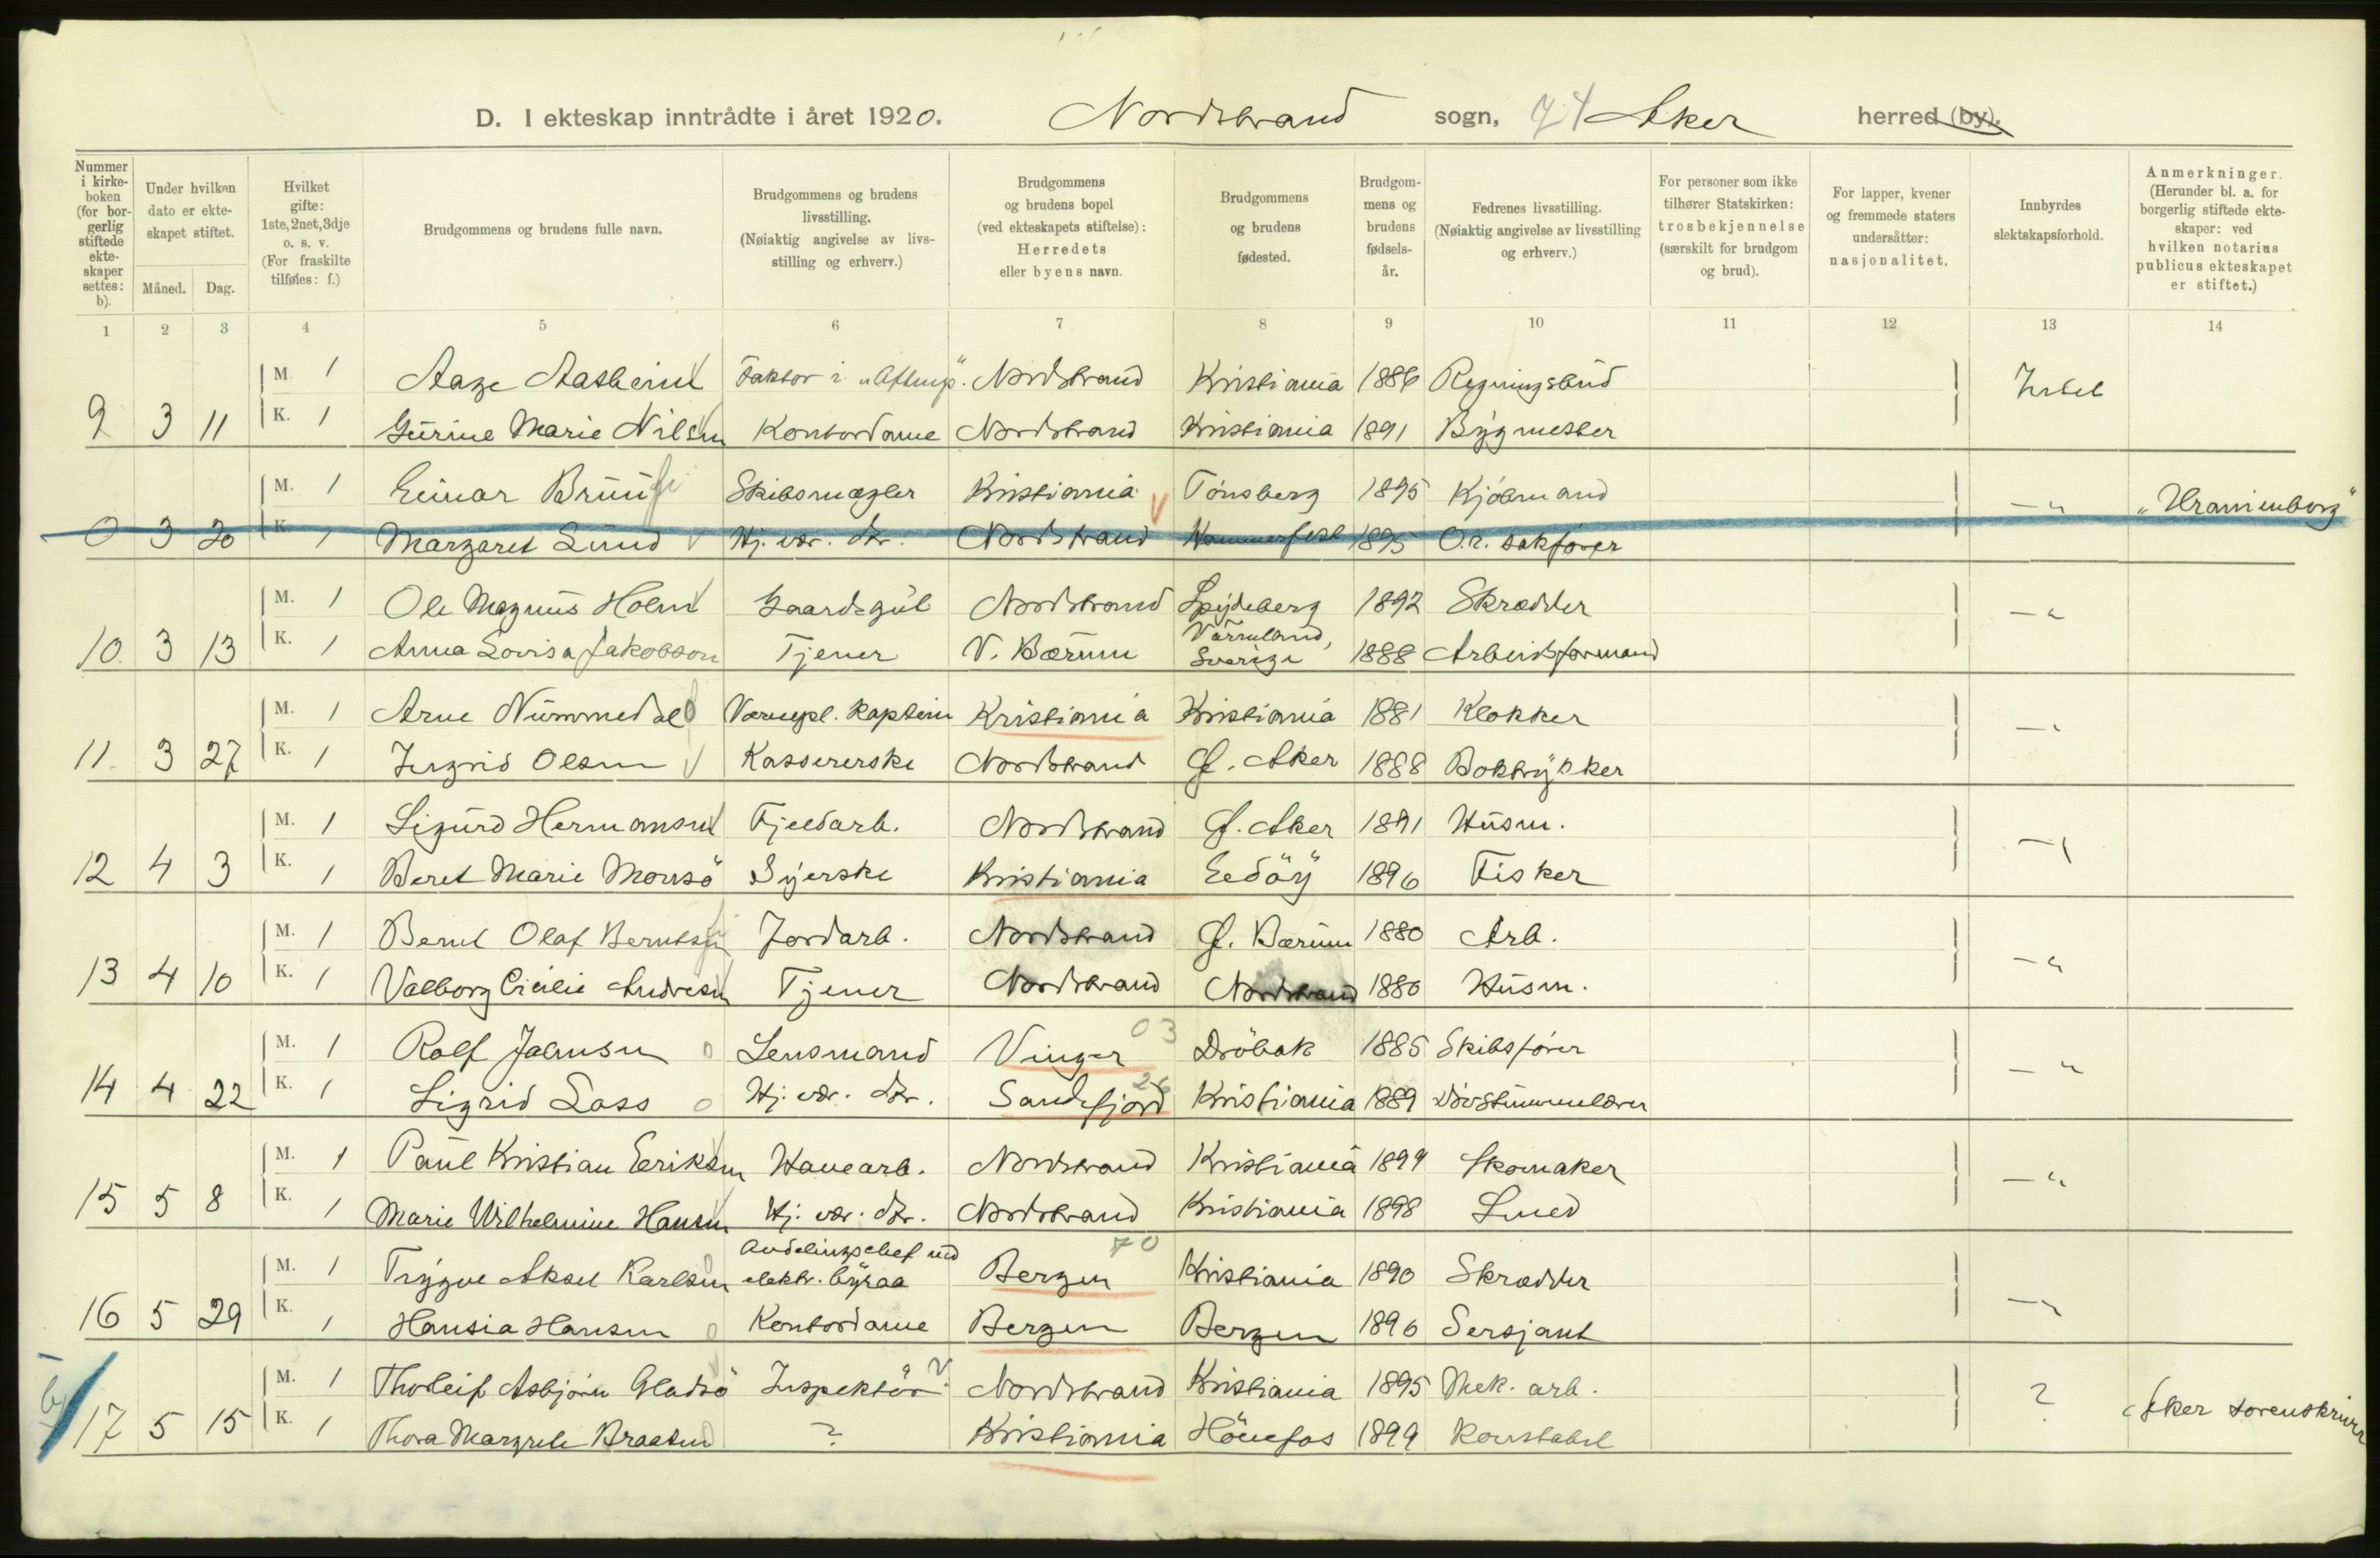 D. I ekteskap inntrådte i året 1920. Nordstrand sogn, 74 Aker herred (by).
Nummer i kirkeboken (for borgerlig stiftede ekteskaper settes: b).
Under hvilken dato er ekteskapet stiftet. Måned. Dag.
Hvilket gifte: 1ste, 2net, 3dje o. s. v. (For fraskilte tilføies: f.)
Brudgommens og brudens fulle navn.
Brudgommens og brudens livsstilling. (Nøiaktig angivelse av livsstilling og erhverv.)
Brudgommens og brudens bopel (ved ekteskapets stiftelse): Herredets eller byens navn.
Brudgommens og brudens fødested.
Brudgommens og brudens fødselsår.
Fedrenes livsstilling. (Nøiaktig angivelse av livsstilling og erhverv.)
For personer som ikke tilhører Statskirken: trosbekjennelse (særskilt for brudgom og brud).
For lapper, kvener og fremmede staters undersåtter: nasjonalitet.
Innbyrdes slektskapsforhold.
Anmerkninger. (Herunder bl. a. for borgerlig stiftede ekteskaper: ved hvilken notarius publicus ekteskapet er stiftet.)
1 2 3 4 5 6 7 8 9 10 11 12 13 14
M. 1 Aage Aasheim Faktor i „Aftenp". Nordstrand Kristiania 1886 Regningsbud Intet
9 3 11 K. 1 Gurine Marie Nilsen Kontordame Nordstrand Kristiania 1891 Bygmester
M. 1 Einar Bruu Skibsmægler Kristiania Tönsberg 1895 Kjöbmand —„— „Uranienborg"
0 3 20 K. 1 Margaret Lund Hj. vær. dtr. Nordstrand Hammerfest 1895 O.r. sakfører
M. 1 Ole Magnus Holm Gaardsgut Nordstrand Spydeberg 1892 Skrædder —„—
10. 3 13 K. 1 Anna Lovisa Jakobson Tjener V. Bærum Värmland, Sverige 1888 Arbeidsformand
M. 1 Arne Nummedal Vernepl. kaptein Kristiania Kristiania 1881 Klokker —„—
11. 3 27 K. 1 Ingrid Olsen Kassererske Nordstrand Ø. Aker 1888 Boktrykker
M. 1 Sigurd Hermansen Fjeldarb. Nordstrand Ø. Aker 1891 Husm. —„—
12 4 3 K. 1 Beret Marie Monsö Syerske Kristiania Edöy 1896 Fisker
M. 1 Bernt Olaf Berntsen Jordarb. Nordstrand Ø. Bærum 1880 Arb. —„—
13 4 10 K. 1 Valborg Cicilie Andresen Tjener Nordstrand Nordstrand 1880 Husm.
M. 1 Rolf Jahnsen Lensmand Vinger 03 Dröbak 1885 Skibsfører —„—
14 4 22 K. 1 Sigrid Lass Hj. vær. dtr. Sandefjord 26 Kristiania 1889 Døvstummelærer
M. 1 Paul Kristian Eriksen Havearb. Nordstrand Kristiania 1899 Skomaker —„—
15 5 8 K. 1 Marie Wilhelmine Hansen Hj. vær. dtr. Nordstrand Kristiania 1898 Smed
M. 1 Trygve Aksel Karlsen Avdelingschef ved elektr. byraa Bergen 70 Kristiania 1890 Skrædder —„—
16 5 29 K. 1 Hansia Hansen Kontordame Bergen Bergen 1896 Sersjant
b M. 1 Thorleif Asbjørn Gladsö Inspektör ? Nordstrand Kristiania 1895 Mek. arb. ? Aker sorenskriver
17 5 15 K. 1 Thora Margrete Braaten ? Kristiania Hönefos 1899 Konstabel